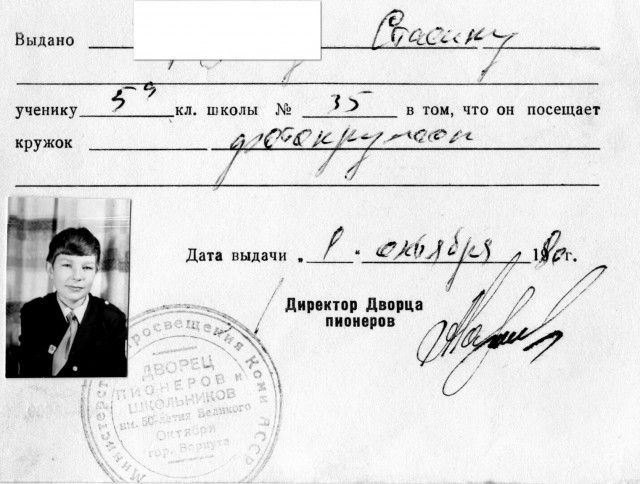 Выдано Стасику
ученику 5а кл. школы № 35 в том, что он посещает
кружок фотокружок
Дата выдачи „1 октября 1980г.
Директор Дворца
пионеров
Министерство просвещения Коми АССР
ДВОРЕЦ
ПИОНЕРОВ и
ШКОЛЬНИКОВ
им. 50-летия Великого
Октября
гор. Воркута